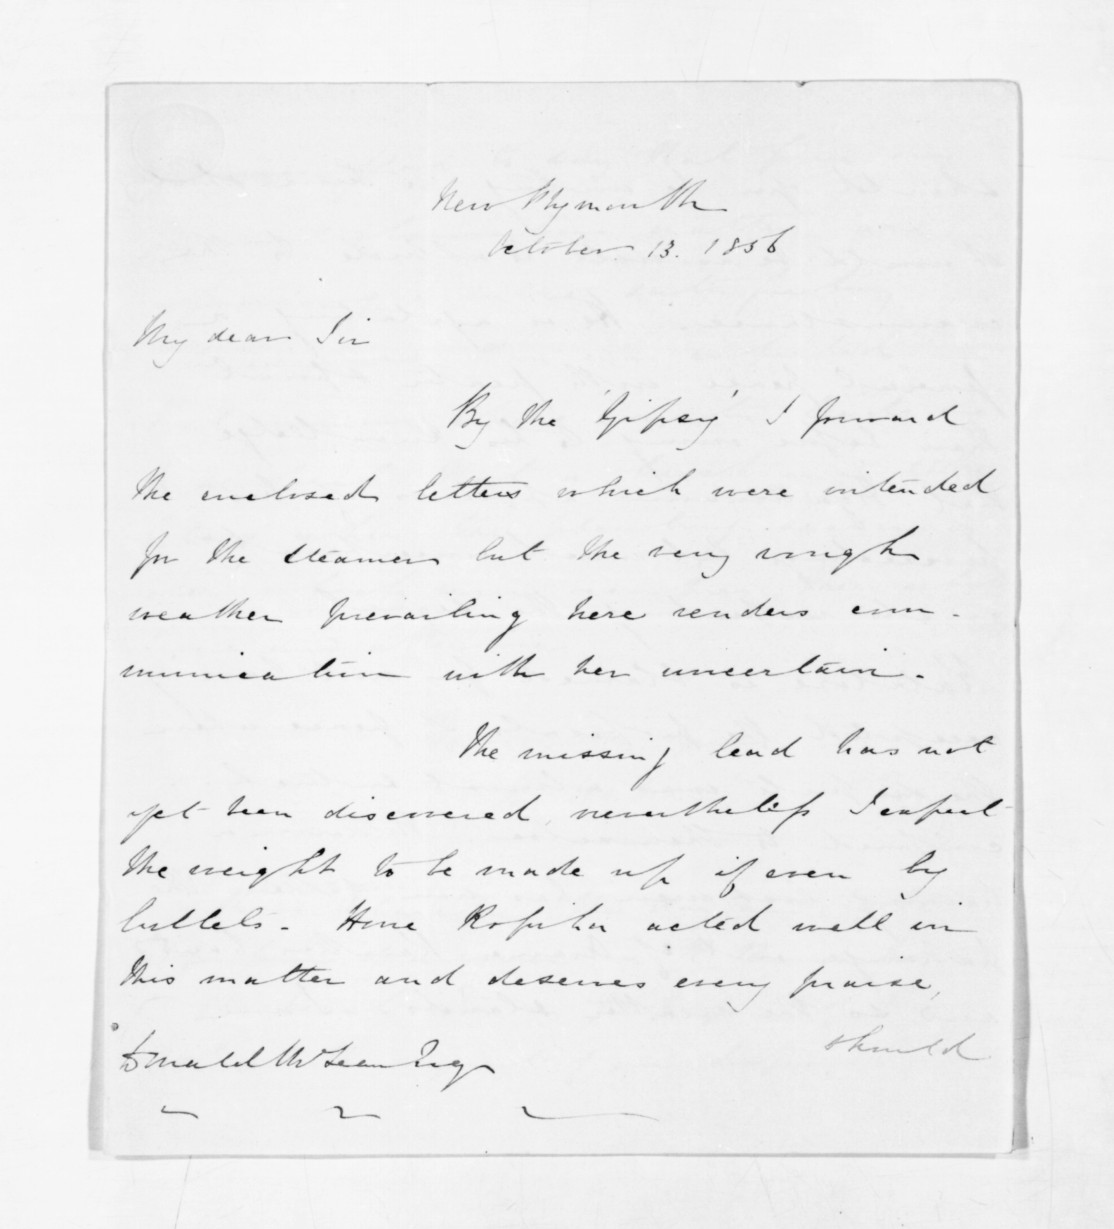 New Plymouth
October 13. 1856
My dear Sir
By the 'Gipsy' I forward
the enclosed letters which were intended
for the Steamer but the very rough
weather prevailing here renders com-
munication with her uncertain.
The missing lead has not
yet been discovered, nevertheless I expect
the weight to be made up if even by
bullets. Hone Ropiha acted well in
this matter and deserves every praise,
should
Donald McLean Esq